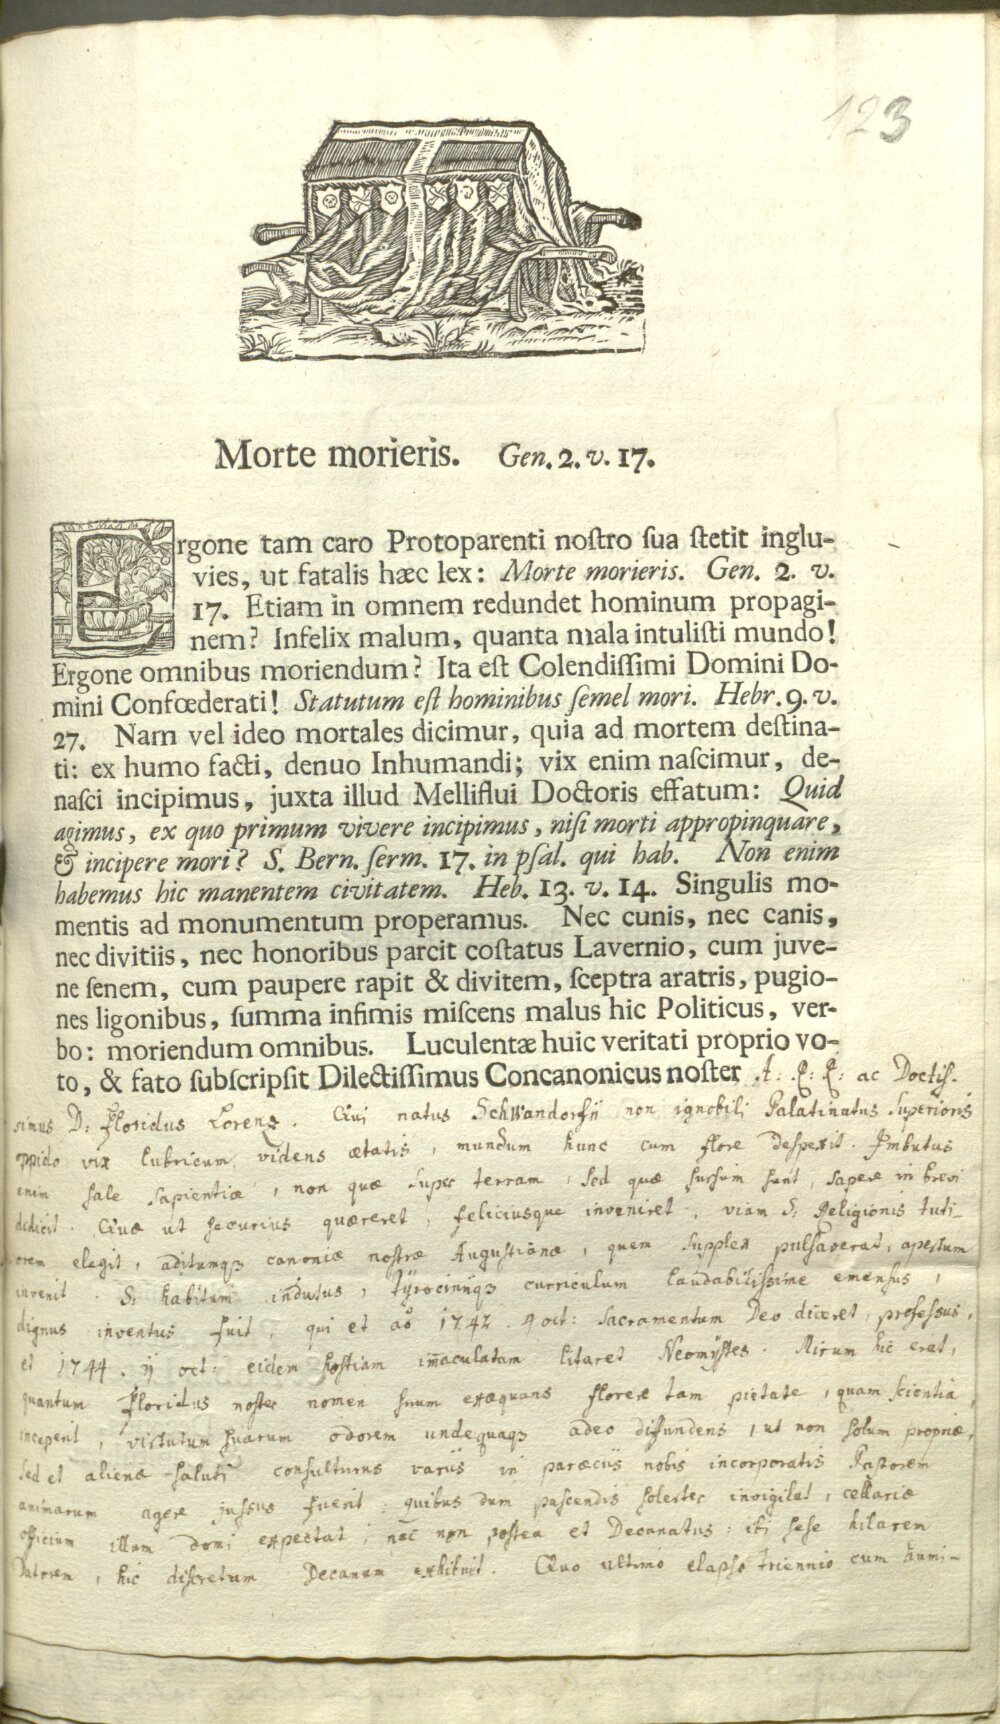 123
Morte morieris. Gen. 2. v. 17.
Ergone tam caro Protoparenti noſtro ſua ſtetit inglu-
vies, ut fatalis hæc lex: Morte morieris. Gen. 2. v.
17. Etiam in omnem redundet hominum propagi-
nem? Infelix malum, quanta mala intuliſti mundo!
Ergone omnibus moriendum? Ita eſt Colendiſſimi Domini Do-
mini Confœderati! Statutum eſt hominibus ſemel mori. Hebr. 9. v.
27. Nam vel ideo mortales dicimur, quia ad mortem deſtina-
ti: ex humo facti, denuo Inhumandi; vix enim naſcimur, de-
naſci incipimus, juxta illud Melliflui Doctoris effatum: Quid
agimus, ex quo primum vivere incipimus, niſi morti appropinquare,
& incipere mori? S. Bern. ſerm. 17. in pſal. qui hab. Non enim
habemus hic manentem civitatem. Heb. 13. v. 14. Singulis mo-
mentis ad monumentum properamus. Nec cunis, nec canis,
nec divitiis, nec honoribus parcit coſtatus Lavernio, cum juve-
ne ſenem, cum paupere rapit & divitem, ſceptra aratris, pugio-
nes ligonibus, ſumma infimis miſcens malus hic Politicus, ver-
bo: moriendum omnibus. Luculentæ huic veritati proprio vo-
to, & fato ſubſcripſit Dilectiſſimus Concanonicus noſter A: R: R: ac Doctis-
simus D: Floridus Lorenz. Qui natus Schwandorfii non ignobili Palatinatus Superioris
oppido vix lubricum videns ætatis, mundum hunc cum flore despexit. Imbutus
enim sale sapientiæ, non quæ super terram, sed quæ sursum sunt, sapere in brevi
didicit. Quæ ut securius quæreret, feliciusque inveniret, viam S: Religionis tuti-
orem elegit, aditumqȝ canoniæ nostræ Augustianæ, quem supplex pulsaverat, apertum
invenit. S: habitum indutus, tÿrociniiqȝ curriculum laudabilissime emensus,
dignus inventus fuit, qui et aõ 1742. 9 oct: sacramentum Deo diceret, professus,
et 1744. 11 oct: eidem hostiam im̄aculatam litaret Neomÿstes. Mirum hic erat,
quantum Floridus noster nomen suum exæquans florere tam pietate, quam scientia
inceperit, virtutum suarum odorem undequaqȝ adeo diffundens, ut non solum propriæ,
sed et alienæ saluti consulturus variis in paræciis nobis incorporatis Pastorem
animarum agere jussus fuerit: quibus dum pascendis solerter invigilat, cellariæ
officium illum domi expectat, nec non postea et Decanatus: ibi sese hilarem
Datorem, hic discretum Decanum exhibuit. Quo ultimo elapso triennio cum humi-